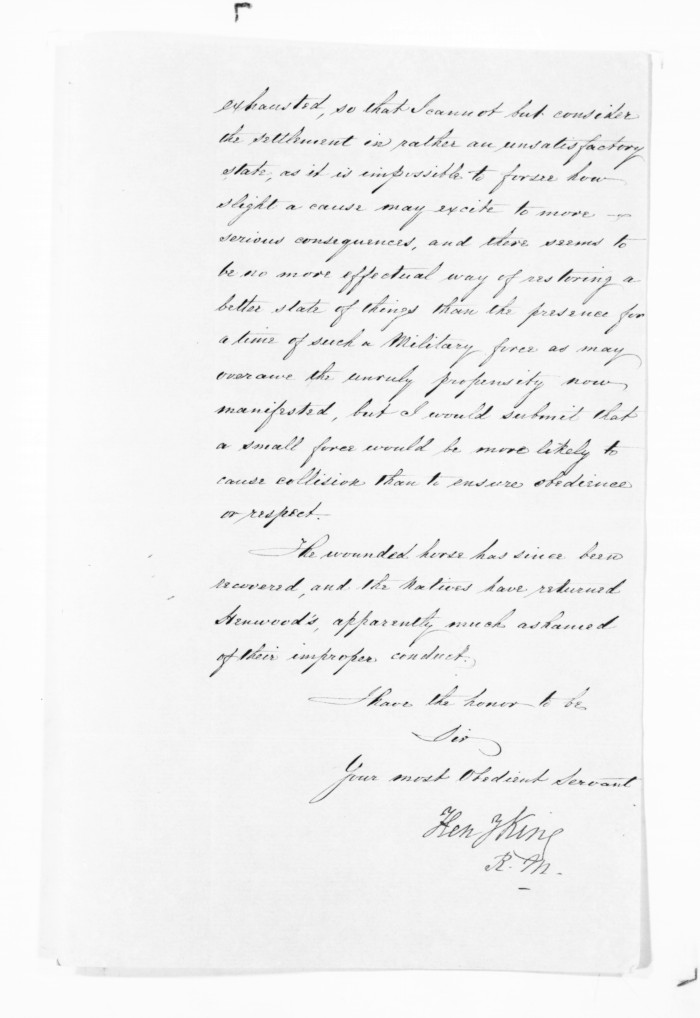 exhausted, so that I cannot but consider
the settlement in rather an unsatisfactory
state, as it is impossible to forsee how
slight a cause may excite to more —
serious consequences, and there seems to
be no more effectual way of restoring a
better state of things than the presence for
a time of such a Military force as may
overawe the unruly propensity now
manifested, but I would submit that
a small force would be more likely to
cause collision than to ensure obedience
or respect.
The wounded horse has since been
recovered, and the Natives have returned
Henwood's, apparently much ashamed
of their improper conduct.
I have the honor to be
Sir
Your most Obedient Servant
Hen y King
R. M.